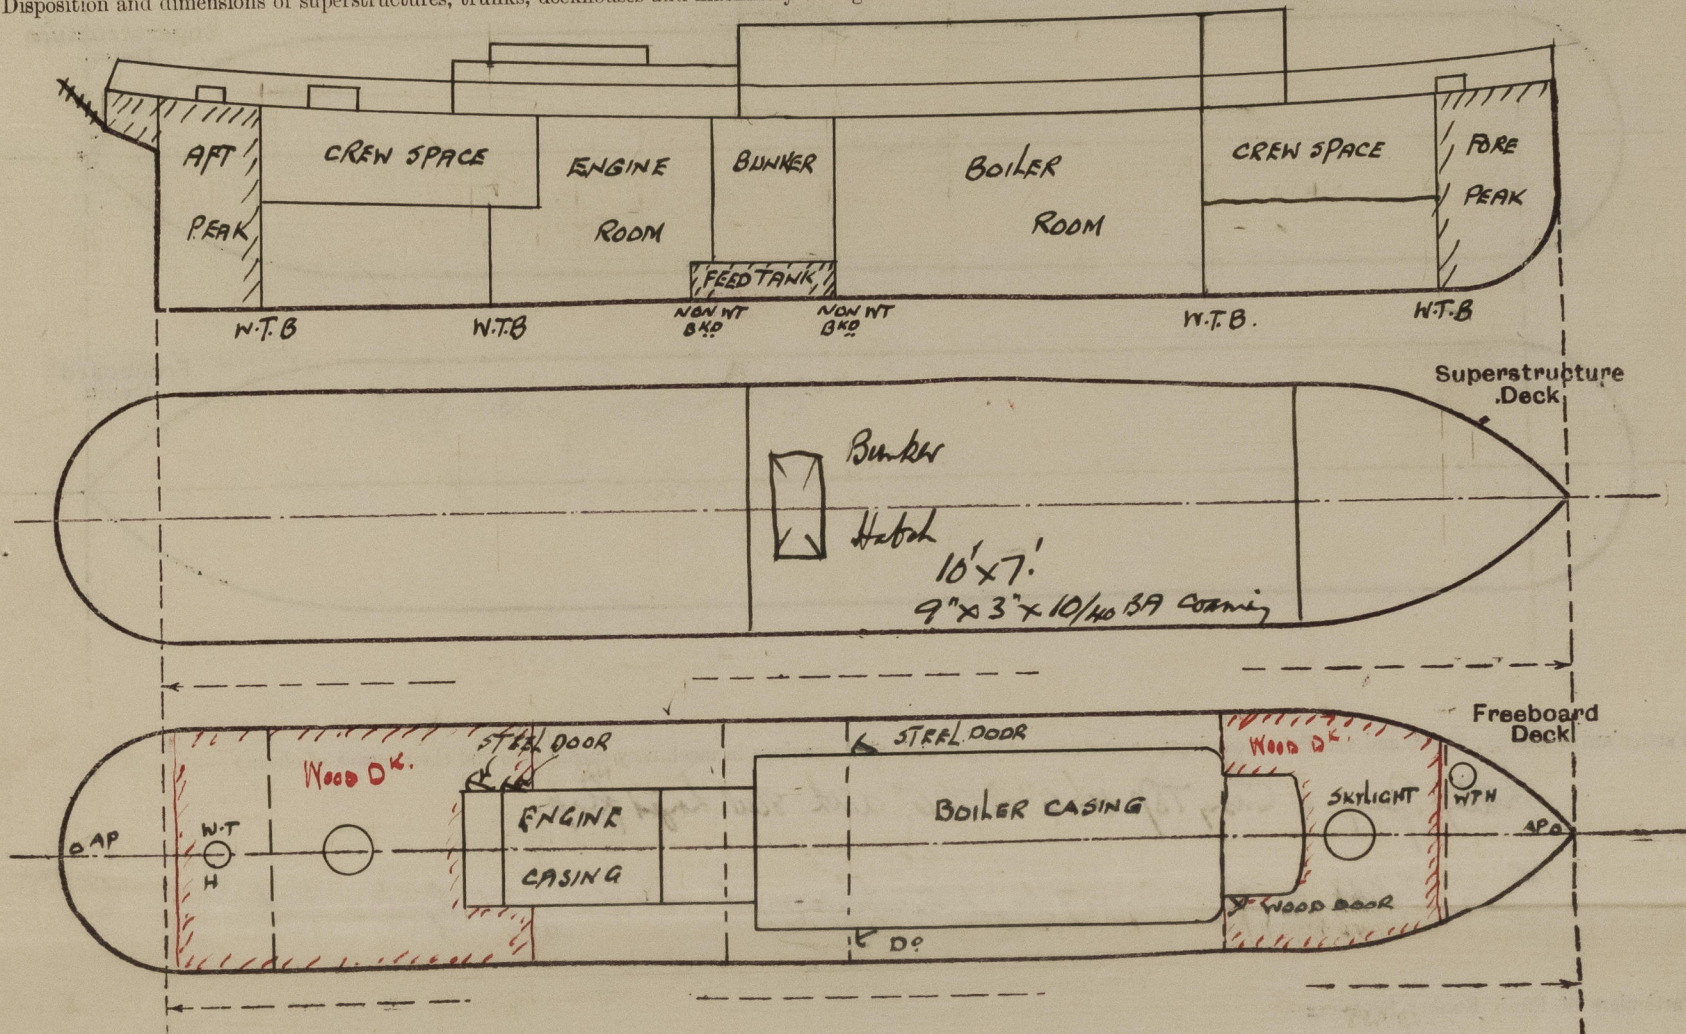 Disposition and dimensions of superstructures, trunks, deckhouses and machinery
AFT
PEAK
CREW SPACE
ENGINE
ROOM
BUNKER
BOILER
ROOM
CREW SPACE
FORE
PEAK
FEED TANK
W.T.B
W.T.B
NON WT
BKD
NON WT
BKD
W.T.B.
W.T.B
Superstructure
Deck
Bunker
Hatch
10' x 7'
9" x 3" x 10/40 BA Coaming
Freeboard
Deck
STEEL DOOR
STEEL DOOR
WOOD DK.
WOOD DK.
AP
W.T
H
ENGINE
CASING
BOILER CASING
SKYLIGHT
WTH
AP
WOOD DOOR
Do